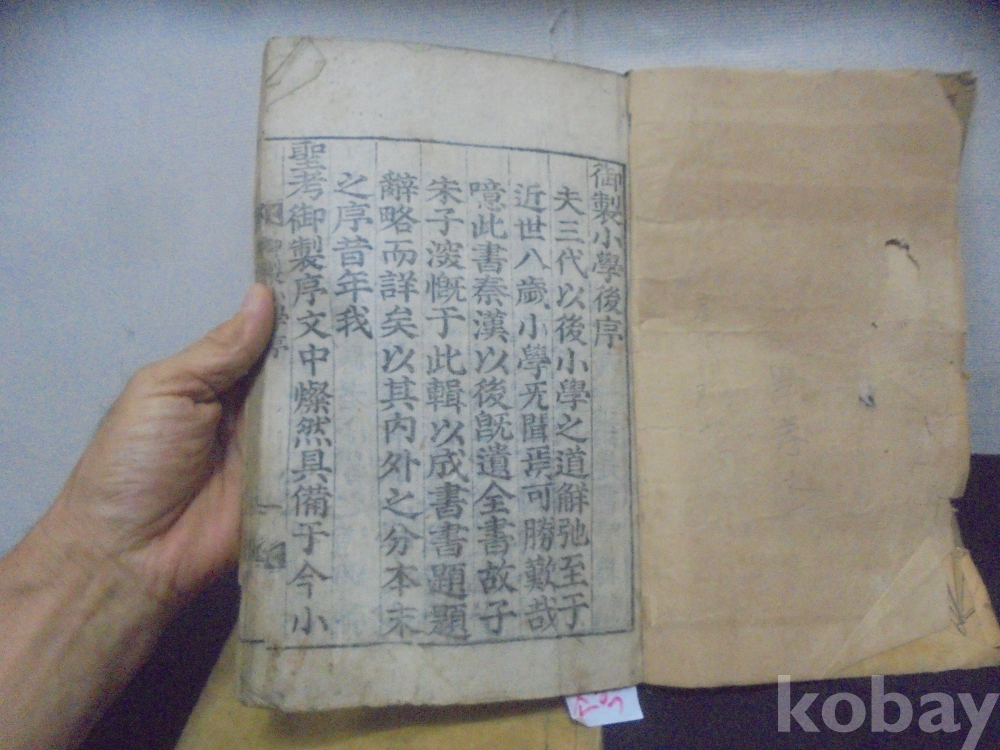 御製小學後序
夫三代以後小學之道解弛至于
近世八歲小學旡聞焉可勝歎哉
噫此書秦漢以後旣遺全書故子
朱子深慨于此輯以成書書題題
辭略而詳矣以其內外之分本末
之序昔年我
聖考御製序文中燦然具備于今小
kobay